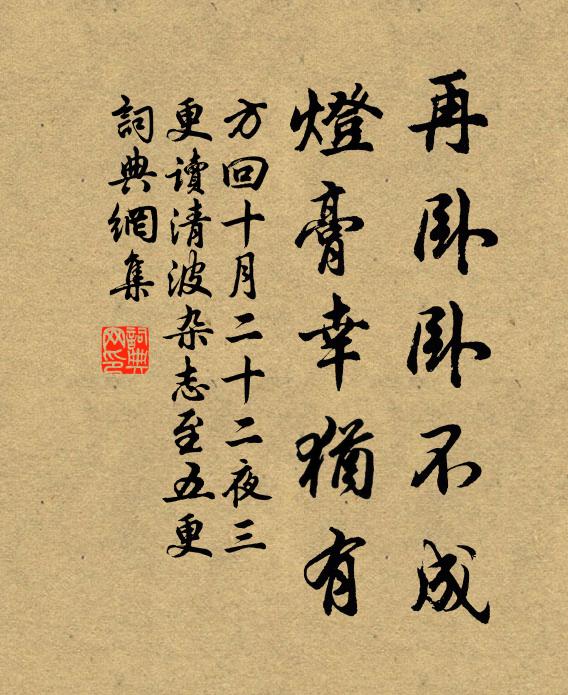 再臥臥不成
燈膏幸猶有
方回十月二十二夜三
更讀清波杂志至五更
詞典網集
詞典网印